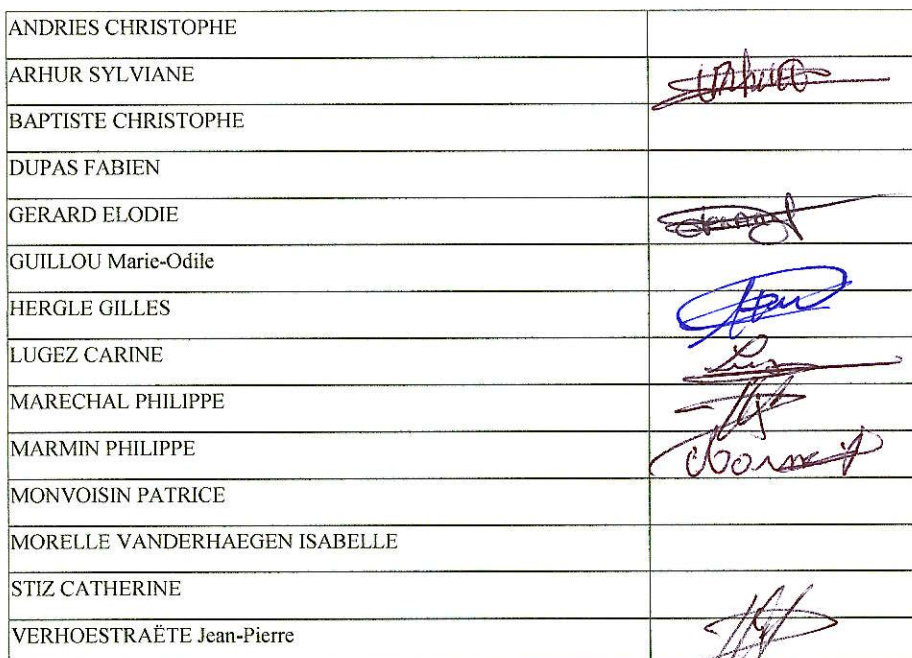 ANDRIES CHRISTOPHE
ARHUR SYLVIANE
BAPTISTE CHRISTOPHE
DUPAS FABIEN
GERARD ELODIE
GUILLOU Marie-Odile
HERGLE GILLES
LUGEZ CARINE
MARECHAL PHILIPPE
MARMIN PHILIPPE
MONVOISIN PATRICE
MORELLE VANDERHAEGEN ISABELLE
STIZ CATHERINE
VERHOESTRAËTE Jean-Pierre